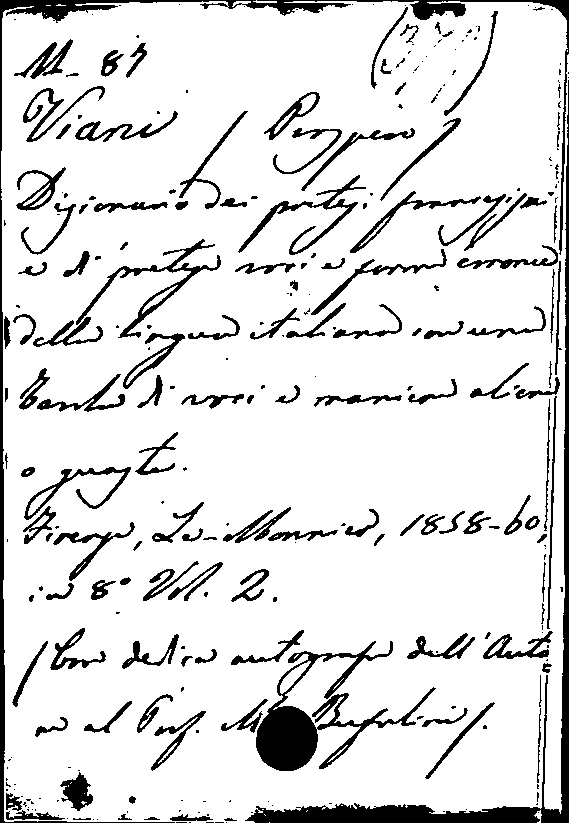 M- 87 (370)
Viani / Prospero /
Dizionario dei pretesi francesismi
e di pretese voci e forme erronee
della lingua italiana con una
tavola di voci e maniere aliene
o guaste.
Firenze, Le-Monnier, 1858-60,
in 8° Vol. 2.
/ Con dedica autografa dell'Auto
re al Prof. Bufalini /.